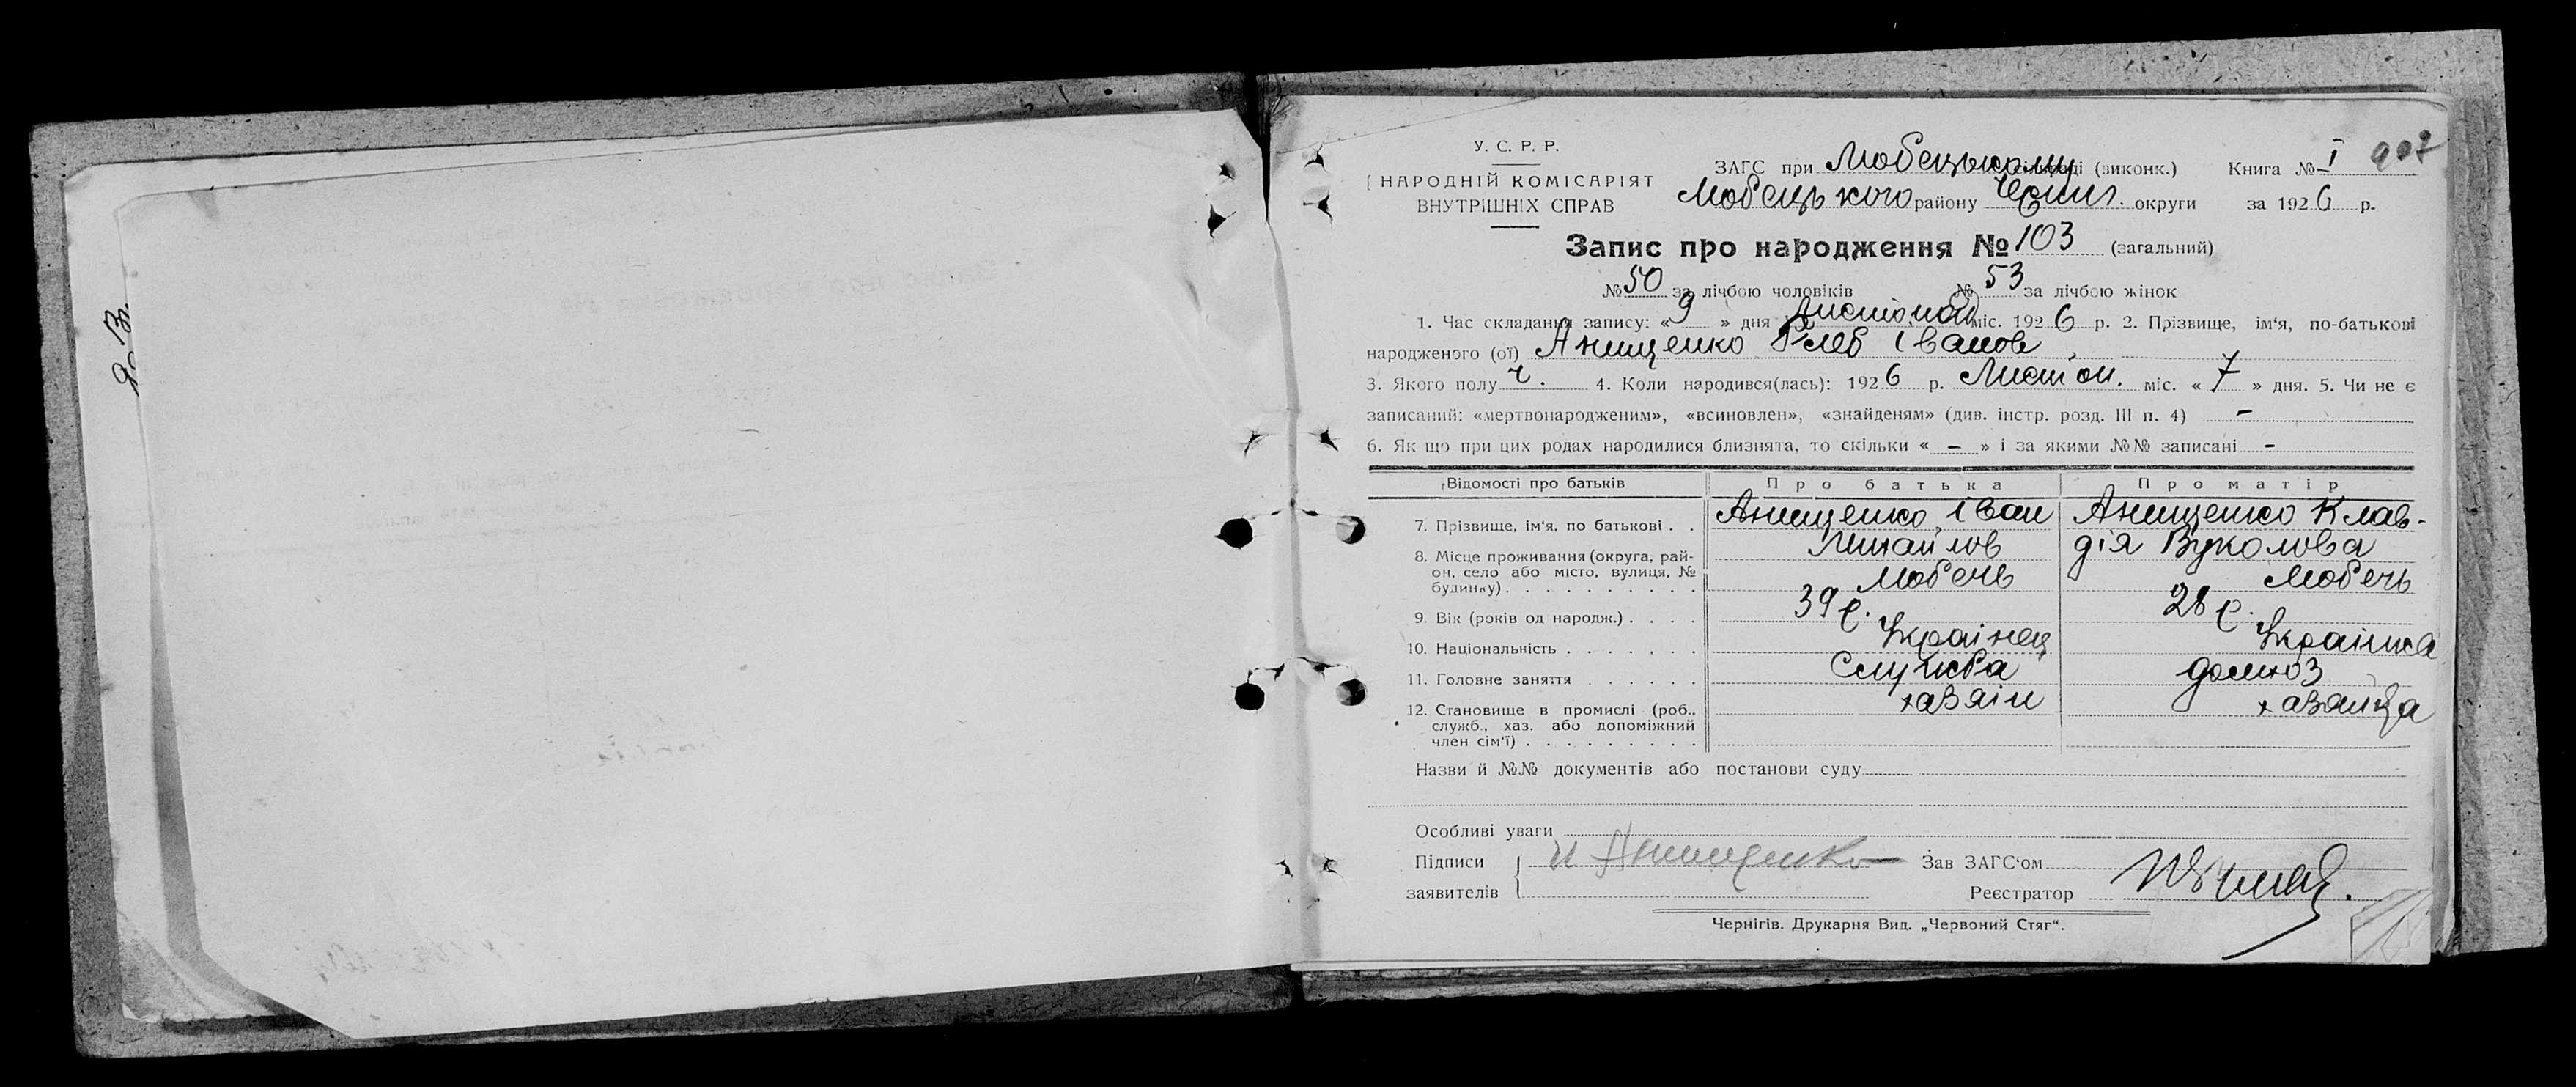 У. С. Р. Р.
НАРОДНІЙ КОМІСАРІЯТ
ВНУТРІШНІХ СПРАВ
ЗАГС при Любецькому сільраді (виконк.) Книга № I
Любецького району Черниг. округи за 1926 р.
Запис про народження № 103 (загальний)
№ 50 за лічбою чоловіків № 53 за лічбою жінок
1. Час складання запису: « 9 » дня Листопад міс. 1926 р. 2. Прізвище, ім'я, по-батькові
народженого (ої) Анищенко Глеб Іванов
3. Якого полу ч. 4. Коли народився(лась): 1926 р. Листоп. міс. « 7 » дня. 5. Чи не є
записаний: «мертвонародженим», «всиновлен», «знайденям» (див. інстр. розд. III п. 4) -
6. Як що при цих родах народилися близнята, то скільки « - » і за якими №№ записані -
Відомості про батьків Про батька Про матір
7. Прізвище, ім'я, по батькові . . Анищенко Іван Анищенко Клав-
Михайлов дія Вуколова
8. Місце проживання (округа, рай-
он, село або місто, вулиця, №
будинку) . . . . . . . . . . Любечь Любечь
9. Вік (років од народж.) . . . . 39 р. 28 р.
10. Національність . . . . . . . Українец Українка
11. Головне заняття . . . . . . Служба домхоз
12. Становище в промислі (роб.,
служб., хаз. або допоміжний
член сім'ї) . . . . . . . . . хазяін хазяйка
Назви й №№ документів або постанови суду
Особливі уваги
Підписи И Анищенко Зав ЗАГС'ом
заявителів Реєстратор
Чернігів. Друкарня Вид. „Червоний Стяг“.